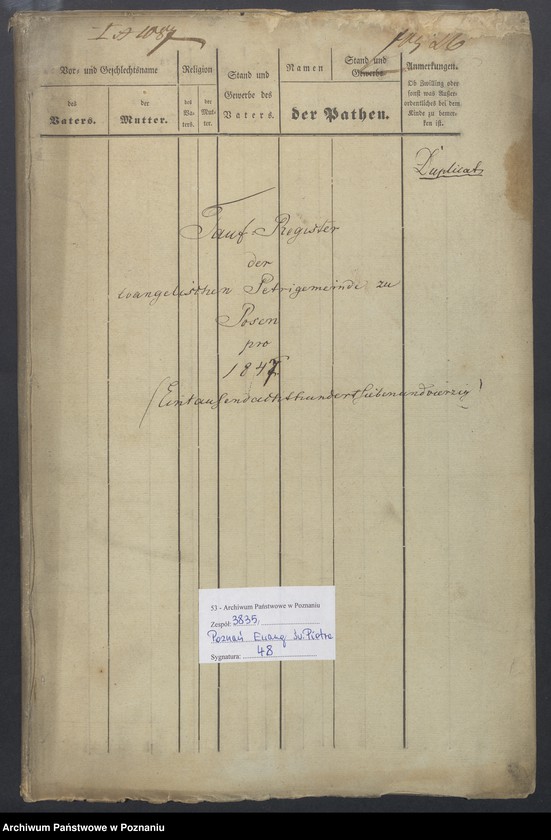 I A 1087
Vor- und Geschlechtsname
des Vaters.
der Mutter.
Religion
des Vaters.
der Mutter.
Stand und
Gewerbe des
Vaters.
Namen
Stand und
Gewerbe
der Pathen.
Anmerkungen.
Ob Zwilling oder
sonst was Außer-
ordentliches bei dem
Kinde zu bemer-
ken ist.
Duplicat
Tauf-Register
der
evangelischen Petrigemeinde zu
Posen
pro
1847
(Eintausendachthundertsiebenundvierzig)
53 - Archiwum Państwowe w Poznaniu
Zespół: 3835
Poznań Ewang. św. Piotra
Sygnatura: 48
Archiwum Państwowe w Poznaniu